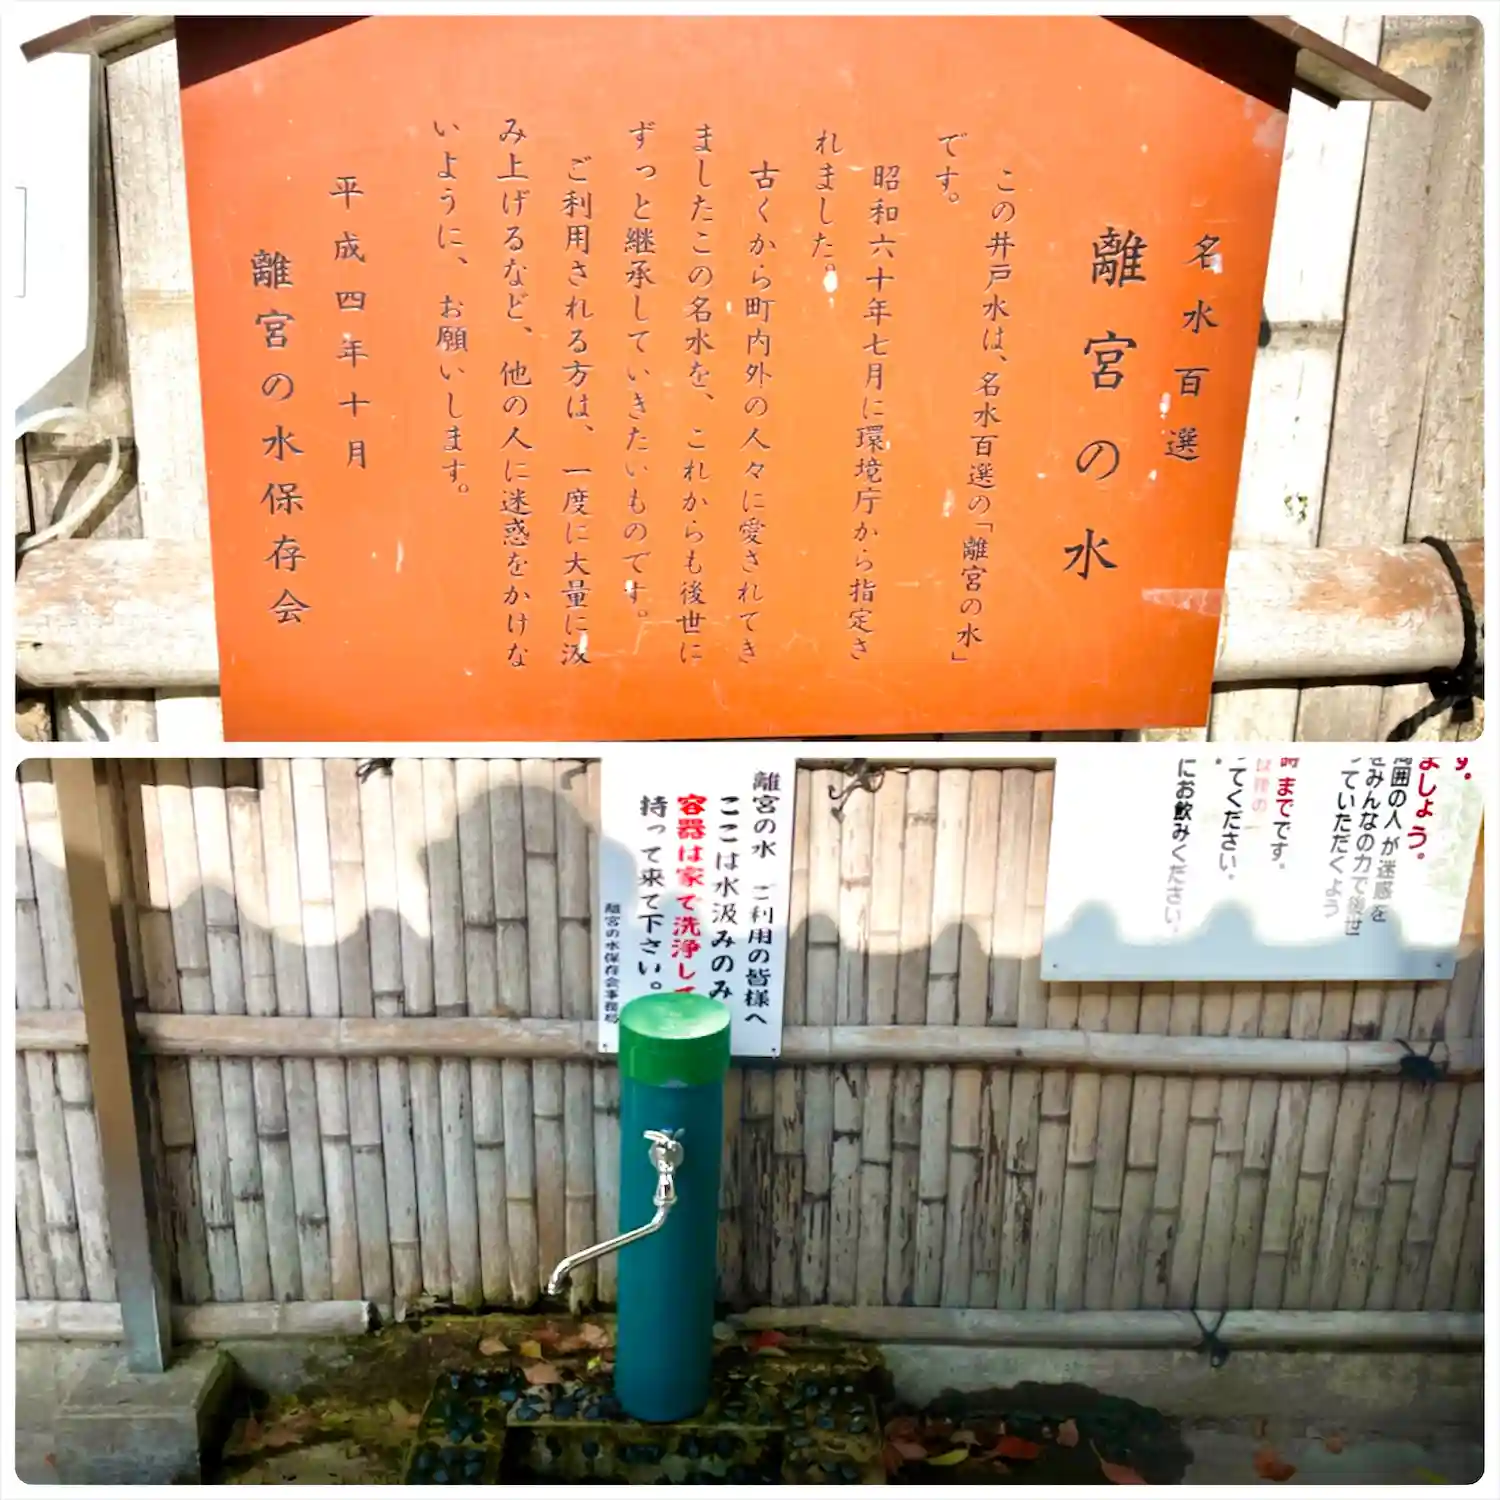 名水百選
離宮の水
この井戸水は、名水百選の「離宮の水」
です。
昭和六十年七月に環境庁から指定さ
れました。
古くから町内外の人々に愛されてき
ましたこの名水を、これからも後世に
ずっと継承していきたいものです。
ご利用される方は、一度に大量に汲
み上げるなど、他の人に迷惑をかけな
いように、お願いします。
平成四年十月
離宮の水保存会
離宮の水 ご利用の皆様へ
ここは水汲みのみ
容器は家で洗浄して
持って来て下さい。
離宮の水保存会事務局
す。
ましょう。
周囲の人が迷惑を
をみんなの力で後世
っていただくよう
時までです。
以降の
ってください。
にお飲みください。